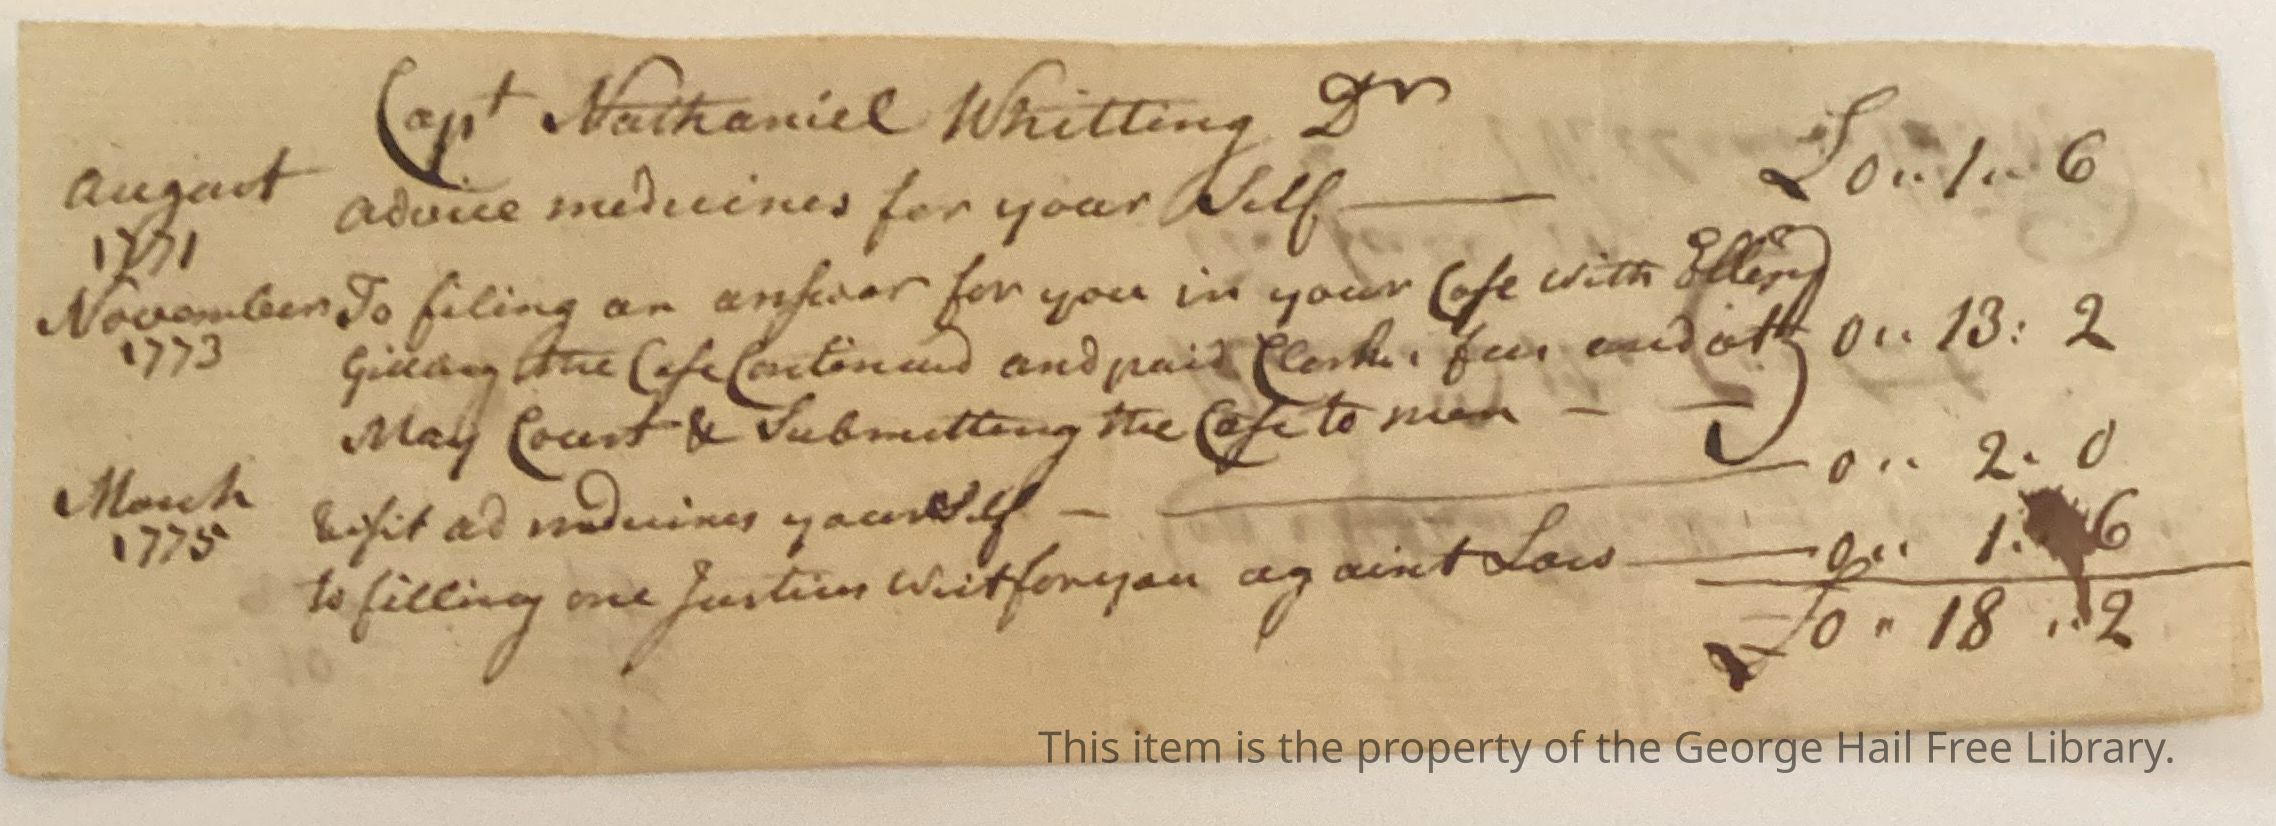 Capt Nathaniel Whitting Dr
August 1771 advice medicines for your Self — £0 .. 1 .. 6
November 1773 To filing an answar for you in your Case with Ellery
the Case Continued and paid Clerks fees and att 0 .. 13 : 2
May Court & Submitting the Case to men —
March 1775 visit ad medicines yourself — 0 .. 2 . 0
to filling one Justices writ for you against Law — 0 .. 1 . 6
£0 " 18 .. 2
This item is the property of the George Hail Free Library.